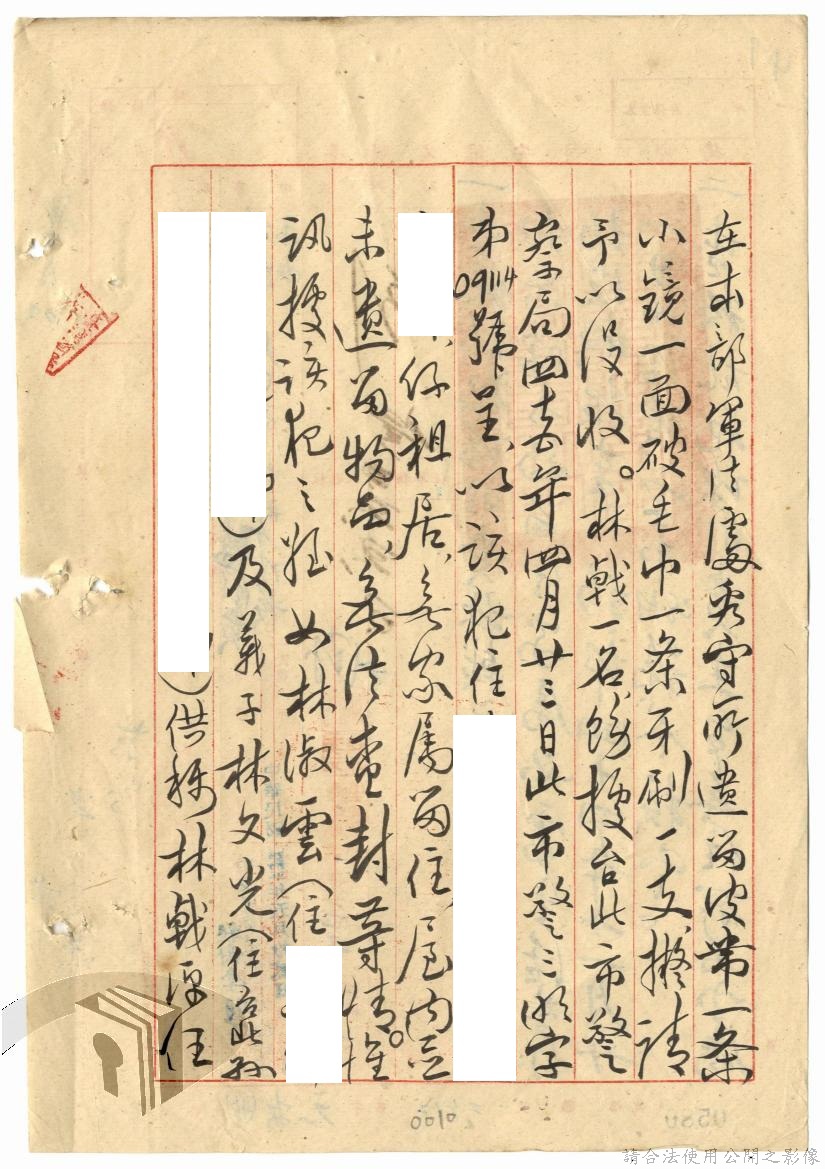 在本部軍法處看守所遺留皮帶一條
小鏡一面破毛巾一条牙刷一支擬請
予以沒收。林戟一名飭據台北市警
察局四十五年四月廿三日北市警三形字
第09114號呈、以該犯住
仔祖居、無家屬留住、屋内并
未遺留物品、無法查封等情。惟
訊據該犯之姪女林淑雲(住
)及義子林文光(住台北縣
)供稱林戟原住
0100
請合法使用公開之影像